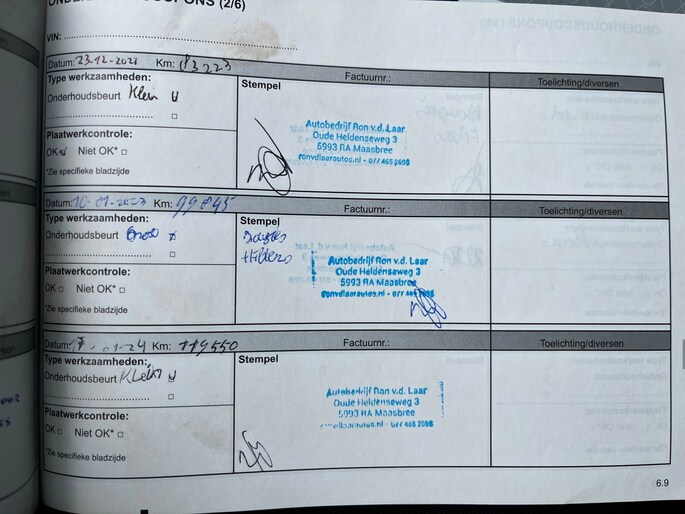 ONDERHOUDSCOUPONS (2/6)
VIN:
Datum: 23-12-2021 Km: 83223 Factuurnr.: Toelichting/diversen
Type werkzaamheden: Stempel
Onderhoudsbeurt Klein
Autobedrijf Ron v.d. Laar
Oude Heldenseweg 3
5993 RA Maasbree
ronvdlaarautos.nl - 077 465 2698
Plaatwerkcontrole:
OK Niet OK*
*Zie specifieke bladzijde
Datum: 10-01-2023 Km: 99845 Factuurnr.: Toelichting/diversen
Type werkzaamheden: Stempel
Onderhoudsbeurt Groot
Autobedrijf Ron v.d. Laar
Oude Heldenseweg 3
5993 RA Maasbree
ronvdlaarautos.nl - 077 465 2698
Plaatwerkcontrole:
OK Niet OK*
*Zie specifieke bladzijde
Datum: 01-24 Km: 119550 Factuurnr.: Toelichting/diversen
Type werkzaamheden: Stempel
Onderhoudsbeurt Klein
Autobedrijf Ron v.d. Laar
Oude Heldenseweg 3
5993 RA Maasbree
ronvdlaarautos.nl - 077 465 2698
Plaatwerkcontrole:
OK Niet OK*
*Zie specifieke bladzijde
6.9